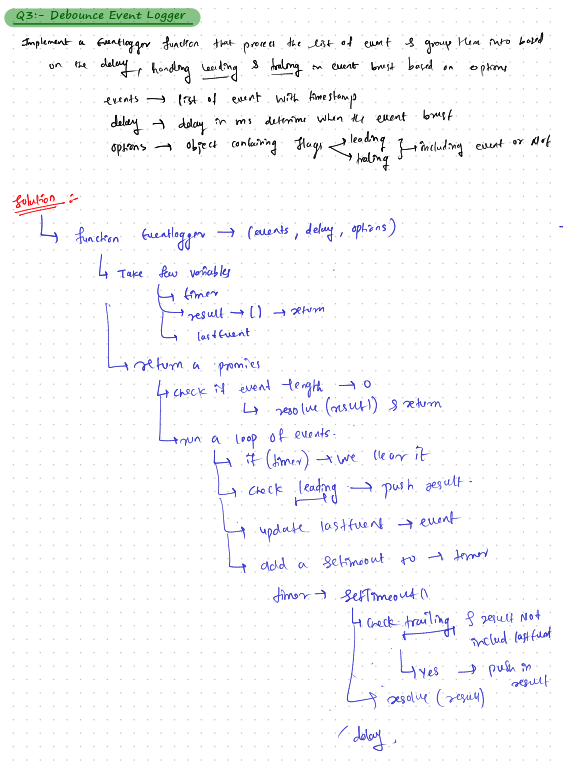 Q3:- Debounce Event Logger
Implement a Eventlogger function that process the list of event & group them into based
on the delay, handling leading & traling in event brust based on options
events → list of event with timestamp
delay → delay in ms determine when the event brust
options → object containing flags → leading
→ traling → including event or Not
Solution :-
function Eventlogger → (events, delay, options)
Take few variables
timer
result → [] → return
lastEvent
return a promies
check if event length → 0
resolve (result) & return
run a loop of events.
if (timer) → we clear it
check leading → push result.
update lastEvent → event
add a setimeout to → timer
timer → setTimeout()
check trailing & result Not
includ lastEvent
yes → push in
result
resolve (result)
(delay,